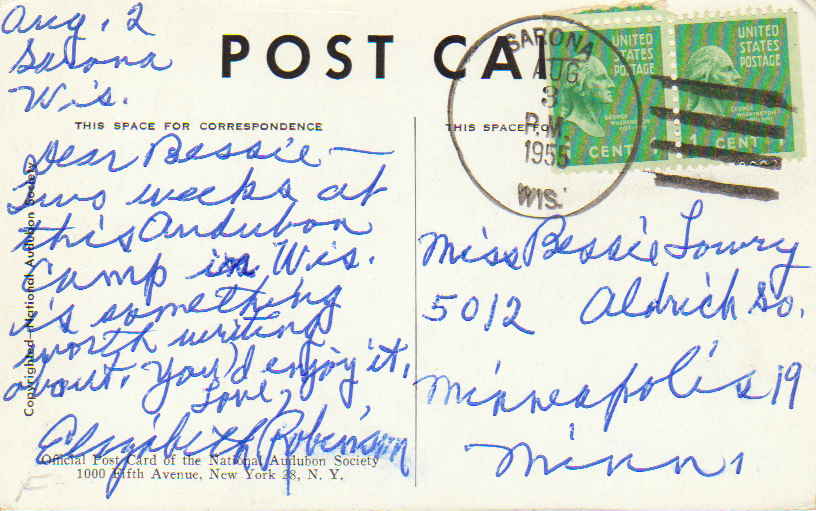 Aug. 2
Sarona
Wis.
POST CA
THIS SPACE FOR CORRESPONDENCE
Dear Bessie —
Two weeks at
this Audubon
Camp in Wis.
is something
worth writing
about. You'd enjoy it.
Love,
Elizabeth Robinson
Official Post Card of the National Audubon Society
1000 Fifth Avenue, New York 28, N. Y.
Copyrighted—National Audubon Society
THIS SPACE FO
SARONA
AUG
3
P.M.
1955
WIS.
UNITED
STATES
POSTAGE
GEORGE
WASHINGTON
CENT
UNITED
STATES
POSTAGE
GEORGE
WASHINGTON
1 CENT 1
Miss Bessie Lowry
5012 Aldrich So.
Minneapolis 19
Minn.